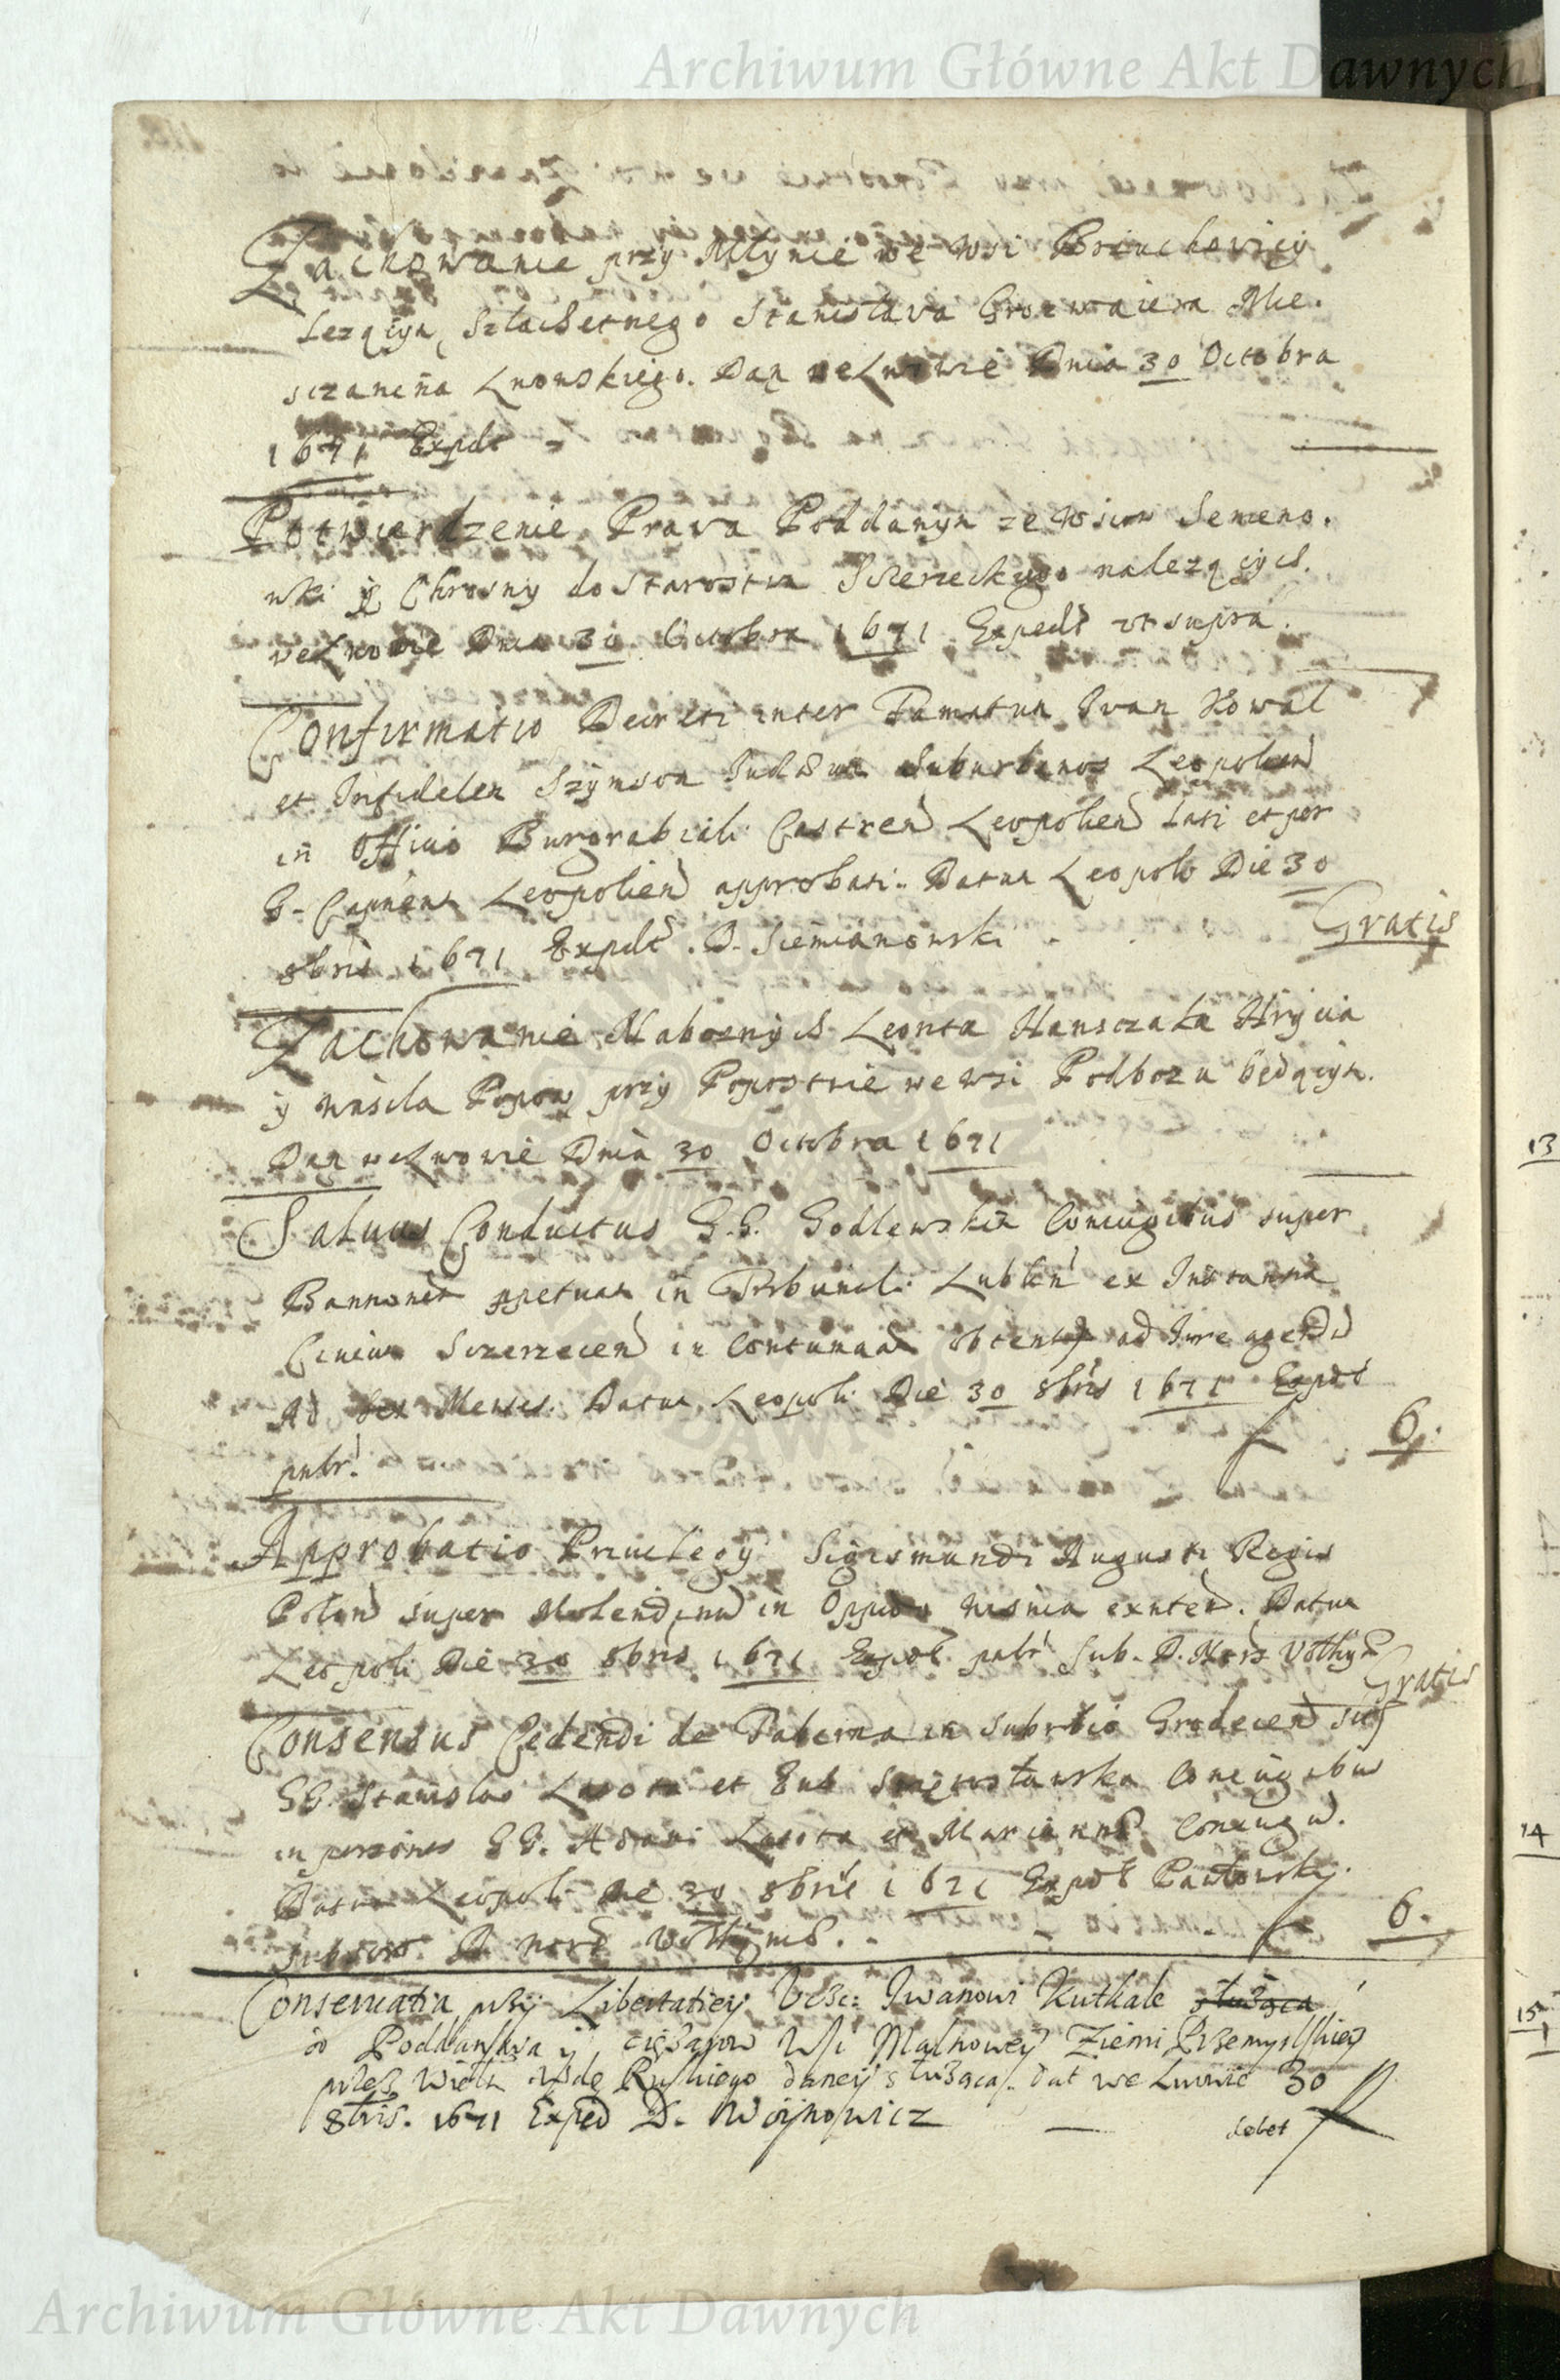 Archiwum Główne Akt Dawnych
Zachowanie przy Młynie we wsi Brzuchovicy
Lezącym Szlachetnego Stanislava Grozwaiera Mie.
sczanina Lwowskiego. Dan we Lwowie Dnia 30 Octobra
1671 Expdt
Potwierdzenie Prava Poddanym ze wsiow Semeno.
wki y Chrosny do Starostwa Sczerzeckiego nalezących.
we Lwowie Dnia 30 Octobra 1671 Expedt ut supra.
Confirmatio Decreti inter Famatum Ivan Kowal
et Infidelem Szymson Judæum Suburbanos Leopolien
in Officio Burgrabiali Castren Leopolien Lati et per
G. Capneum Leopolien approbati. Datum Leopoli Die 30
8bris 1671 Expdt. D. Siemianowski
Gratis
Zachowanie Naboznych Leonta Hawsczaka Hrycia
y Wasila Popow przy Popostwie we wsi Podbozu będącym.
Dan we Lwowie Dnia 30 Octobra 1671
Salvus Conductus G.G. Godlewskim Coniugibus super
Bannonem ppetuam in Tribunali Lublin ex Instantia
Civium Sczerzecen in Contumaciam obtentum ad Jure agendum
Ad Sex Menses. Datum Leopoli Die 30 8bris 1671 Expdt
patr.
6.
Approbatio Priuilegy Sigismundi Augusti Regis
Polon super Molendinum in Oppido Wisnia exnten. Datum
Leopoli Die 30 8bris 1671 Expdt patr Sub. D. Volhyn
Gratis
Consensus Cedendi de Taberna in Suburbio Grodecen
GG. Stanislao Lasota et Coniugibus
in personas GG. Adami Lasota et Marianna Coniugum.
Datum Leopoli Die 30 8bris 1671 Expdt Pawlowsky
6.
Conseruatia przy Libertaciey Vczc: Iwanowi Kuthale służąca
od Poddanstwa y cięzarow Wsi Malnowey Ziemi Przemyslskiey
przez Wielm Wdę Ruskiego daney służąca. Dat we Lwowie 30
8bris. 1671 Exped D. Woynowicz
debet
13
14
15
Archiwum Główne Akt Dawnych